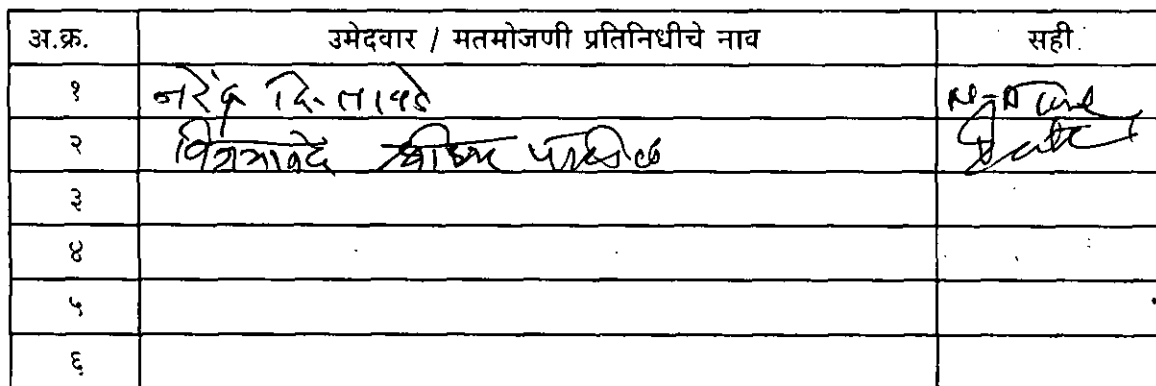 अ.क्र. उमेदवार / मतमोजणी प्रतिनिधीचे नाव सही
१ नरेंद्र दि. तावडे
२ पाटील
३
४
५
६